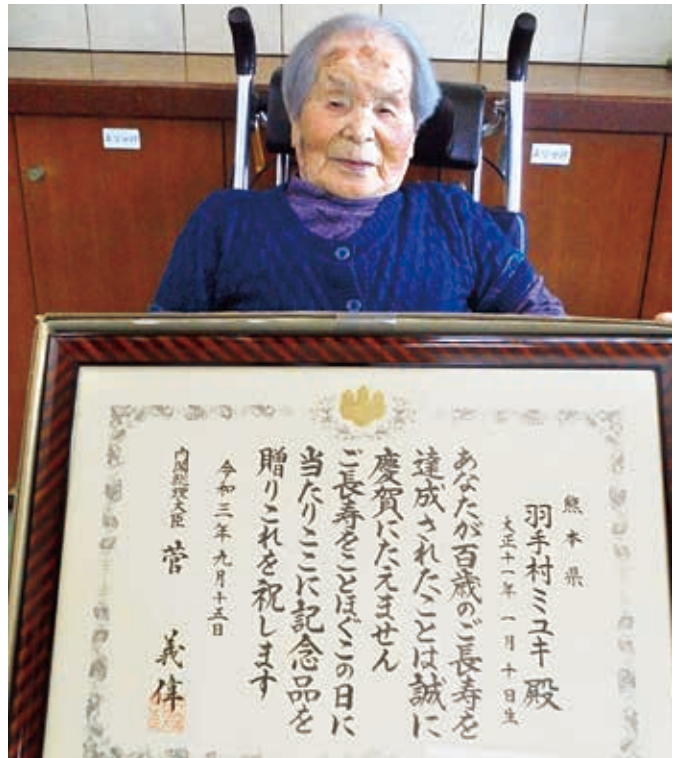 熊本県
羽手村ミユキ 殿
大正十一年 一月十日生
あなたが百歳のご長寿を
達成されたことは誠に
慶賀にたえません
ご長寿をことほぐこの日に
当たりここに記念品を
贈りこれを祝します
令和三年九月十五日
内閣総理大臣 菅 義偉